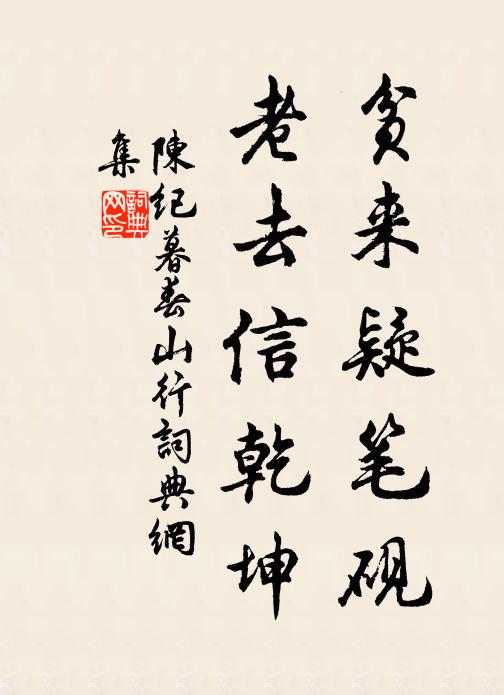 贫来疑笔砚
老去信乾坤
陳纪暮春山行詞典網
集
詞典网印